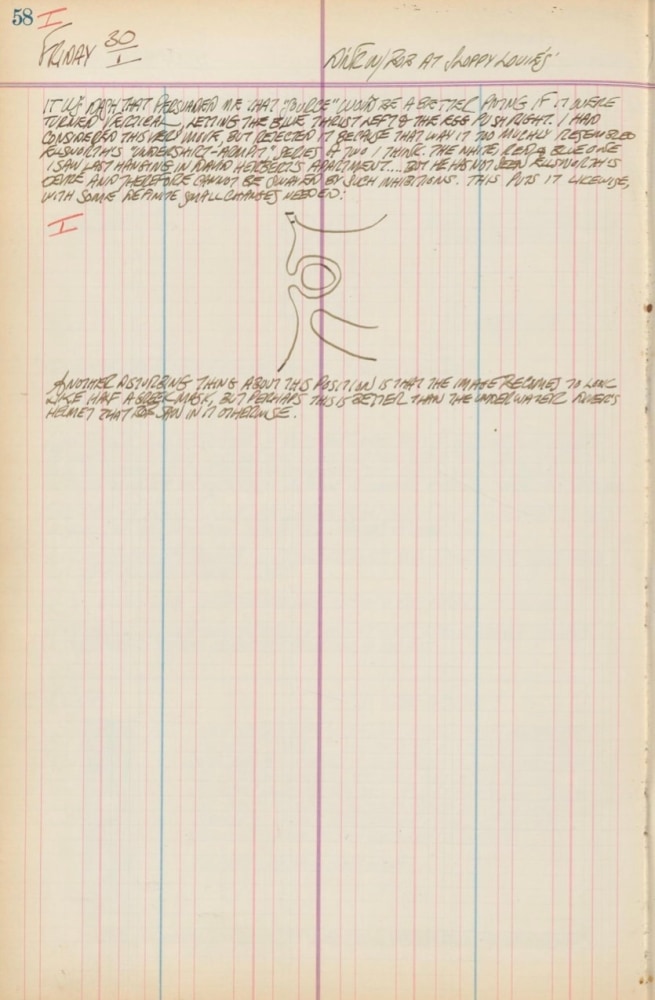 58 I
FRIDAY 30/I DIN'R W/ ROB AT SLOPPY LOUIE'S
IT WAS THAT PERSUADED ME THAT "SOURCE" WOULD BE A BETTER PTING IF IT WERE
TURNED VERTICAL, LETTING THE BLUE THRUST LEFT & THE RED PUSH RIGHT. I HAD
CONSIDERED THIS VERY MOVE, BUT REJECTED IT BECAUSE THAT WAY IT TOO MUCHLY RESEMBLED
ELSWORTH'S SERIES OF TWO I THINK. THE WHITE, RED & BLUE ONE
I SAW LAST HANGING IN DAVID HERBERT'S APARTMENT... BUT HE HAS NOT SEEN ELSWORTH'S
AND THEREFORE CANNOT BE SWAYED BY SUCH INHIBITIONS. THIS PUTS IT LIKEWISE,
WITH SOME DEFINITE SMALL CHANGES NEEDED:
I
ANOTHER DISTURBING THING ABOUT THIS POSITION IS THAT THE IMAGE BECOMES TO LOOK
LIKE HALF A GREEK MASK, BUT PERHAPS THIS IS BETTER THAN THE UNDERWATER DIVER'S
HELMET THAT ROB SAW IN IT OTHERWISE.